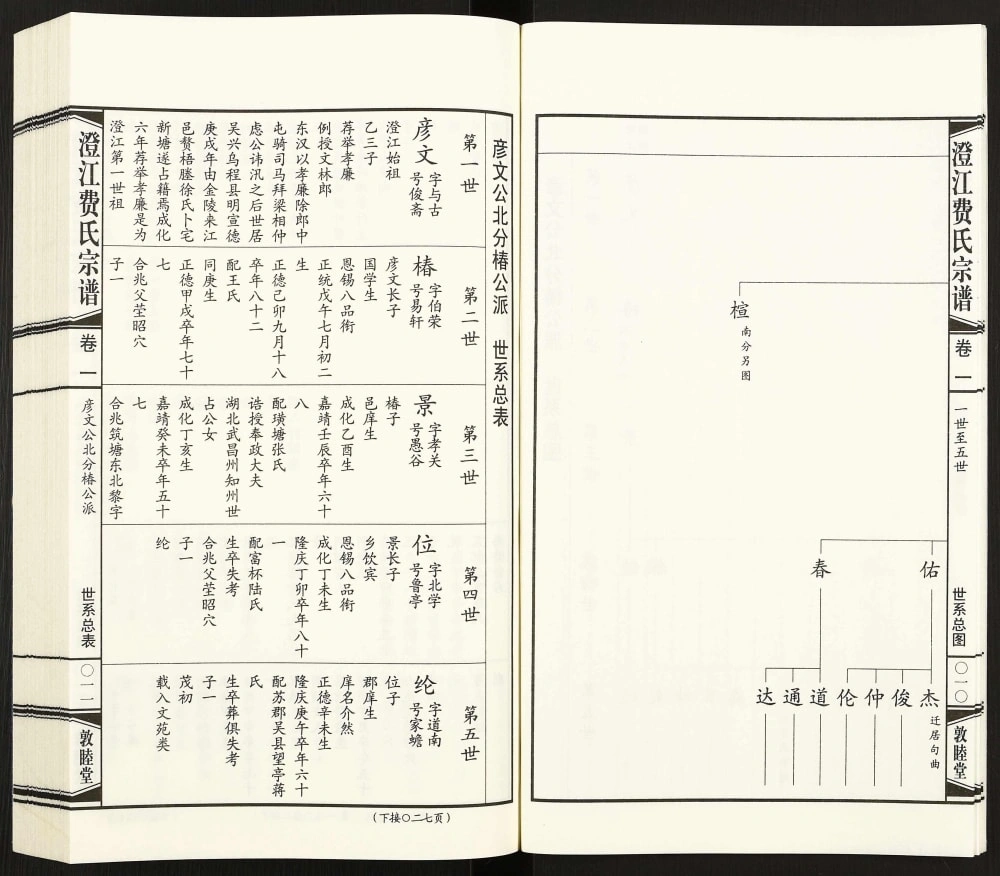 澄江费氏宗谱
卷一
一世至五世
世系总图
〇一〇
敦睦堂
楦
南分另图
佑
春
杰
迁居句曲
俊
仲
伦
道
通
达
彦文公北分椿公派　世系总表
第一世
彦文
字与古
号俊斋
澄江始祖
乙三子
荐举孝廉
例授文林郎
东汉以孝廉除郎中
屯骑司马拜梁相仲
虑公讳汎之后世居
吴兴乌程县明宣德
庚戌年由金陵来江
邑赘梧塍徐氏卜宅
新塘遂占籍焉成化
六年荐举孝廉是为
澄江第一世祖
第二世
椿
字伯荣
号易轩
彦文长子
国学生
恩锡八品衔
正统戊午七月初二
生
正德己卯九月十八
卒年八十二
配王氏
同庚生
正德甲戌卒年七十
七
合兆父茔昭穴
子一
第三世
景
字孝关
号愚谷
椿子
邑庠生
成化乙酉生
嘉靖壬辰卒年六十
八
配璜塘张氏
诰授奉政大夫
湖北武昌州知州世
占公女
成化丁亥生
嘉靖癸未卒年五十
七
合兆筑塘东北黎字
第四世
位
字北学
号鲁亭
景长子
乡饮宾
恩锡八品衔
成化丁未生
隆庆丁卯卒年八十
一
配富杯陆氏
生卒失考
合兆父茔昭穴
子一
纶
第五世
纶
字道南
号家蟾
位子
郡庠生
庠名介然
正德辛未生
隆庆庚午卒年六十
配苏郡吴县望亭蒋
氏
生卒葬俱失考
子一
茂初
载入文苑类
澄江费氏宗谱
卷一
彦文公北分椿公派
世系总表
〇一一
敦睦堂
（下接〇二七页）